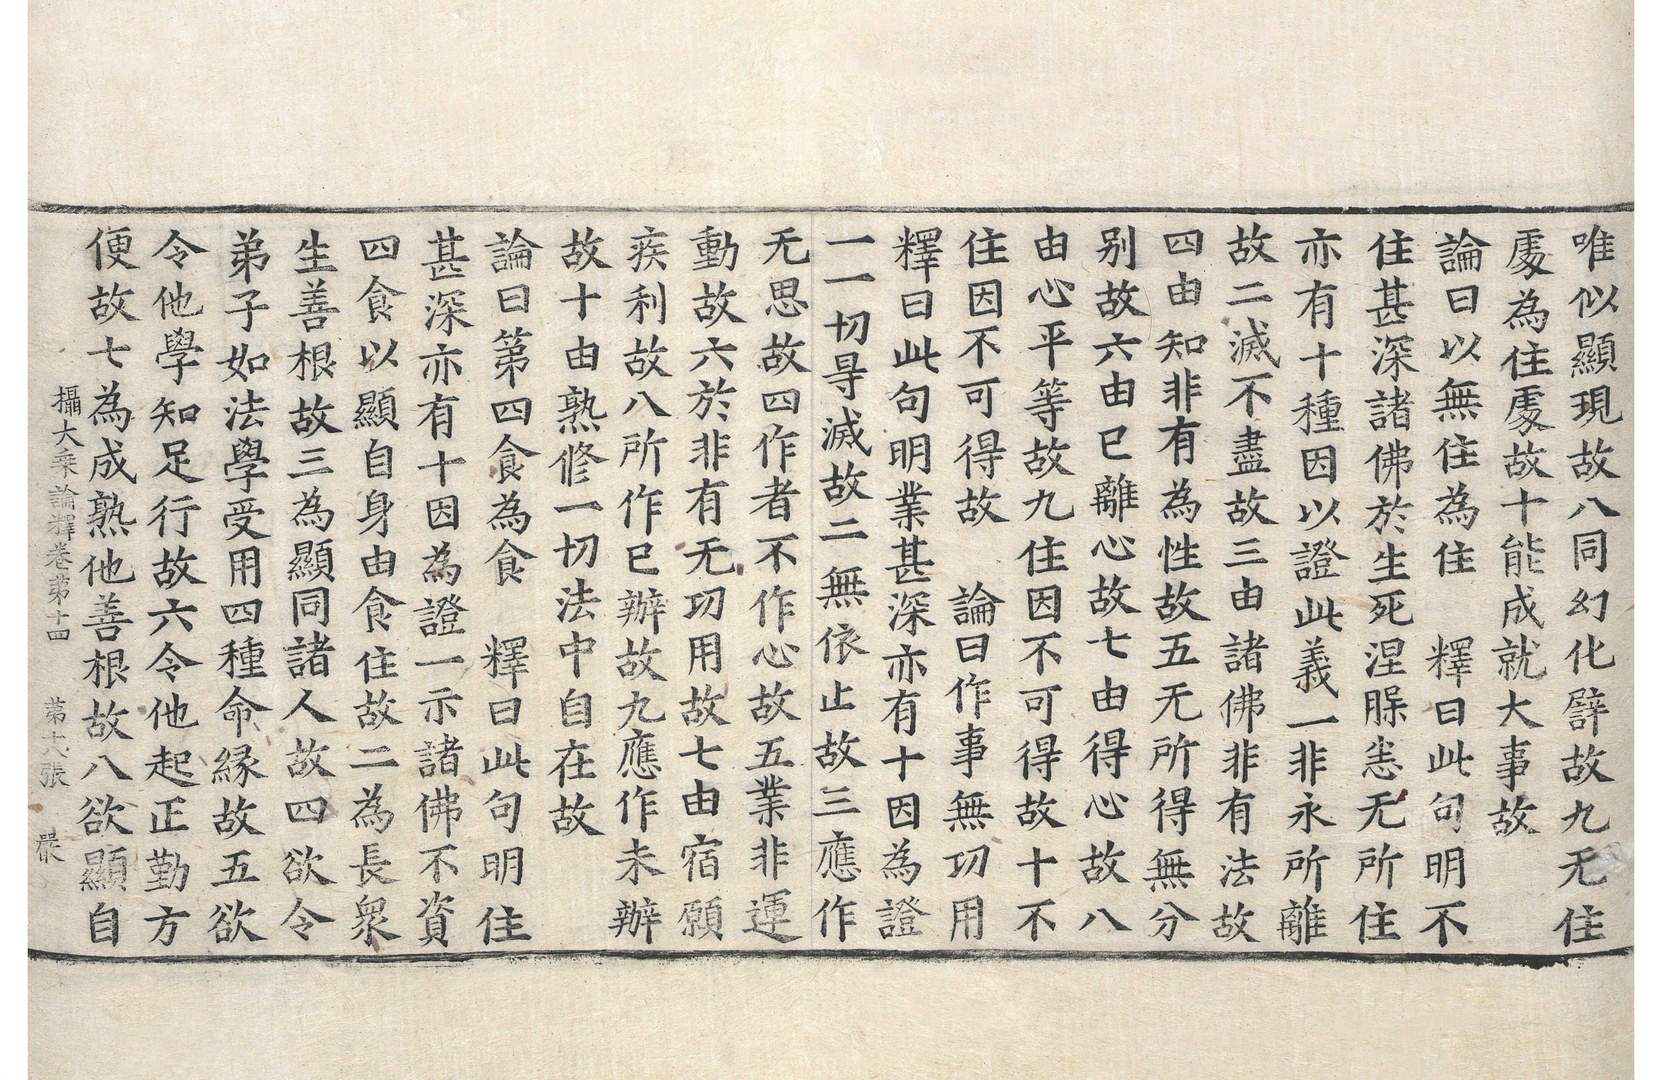 唯似顯現故八同幻化譬故九无住
處為住處故十能成就大事故
論曰以無住為住　釋曰此句明不
住甚深諸佛於生死涅槃恚无所住
亦有十種因以證此義一非永所離
故二滅不盡故三由諸佛非有法故
四由知非有為性故五无所得無分
别故六由已離心故七由得心故八
由心平等故九住因不可得故十不
住因不可得故　論曰作事無功用
釋曰此句明業甚深亦有十因為證
一一切㝵滅故二無依止故三應作
无思故四作者不作心故五業非運
動故六於非有无功用故七由宿願
疾利故八所作已辦故九應作未辦
故十由熟修一切法中自在故
論曰第四食為食　釋曰此句明住
甚深亦有十因為證一示諸佛不資
四食以顯自身由食住故二為長衆
生善根故三為顯同諸人故四欲令
弟子如法學受用四種命縁故五欲
令他學知足行故六令他起正勤方
便故七為成熟他善根故八欲顯自
攝大乘論釋卷第十四　第十八張　嚴